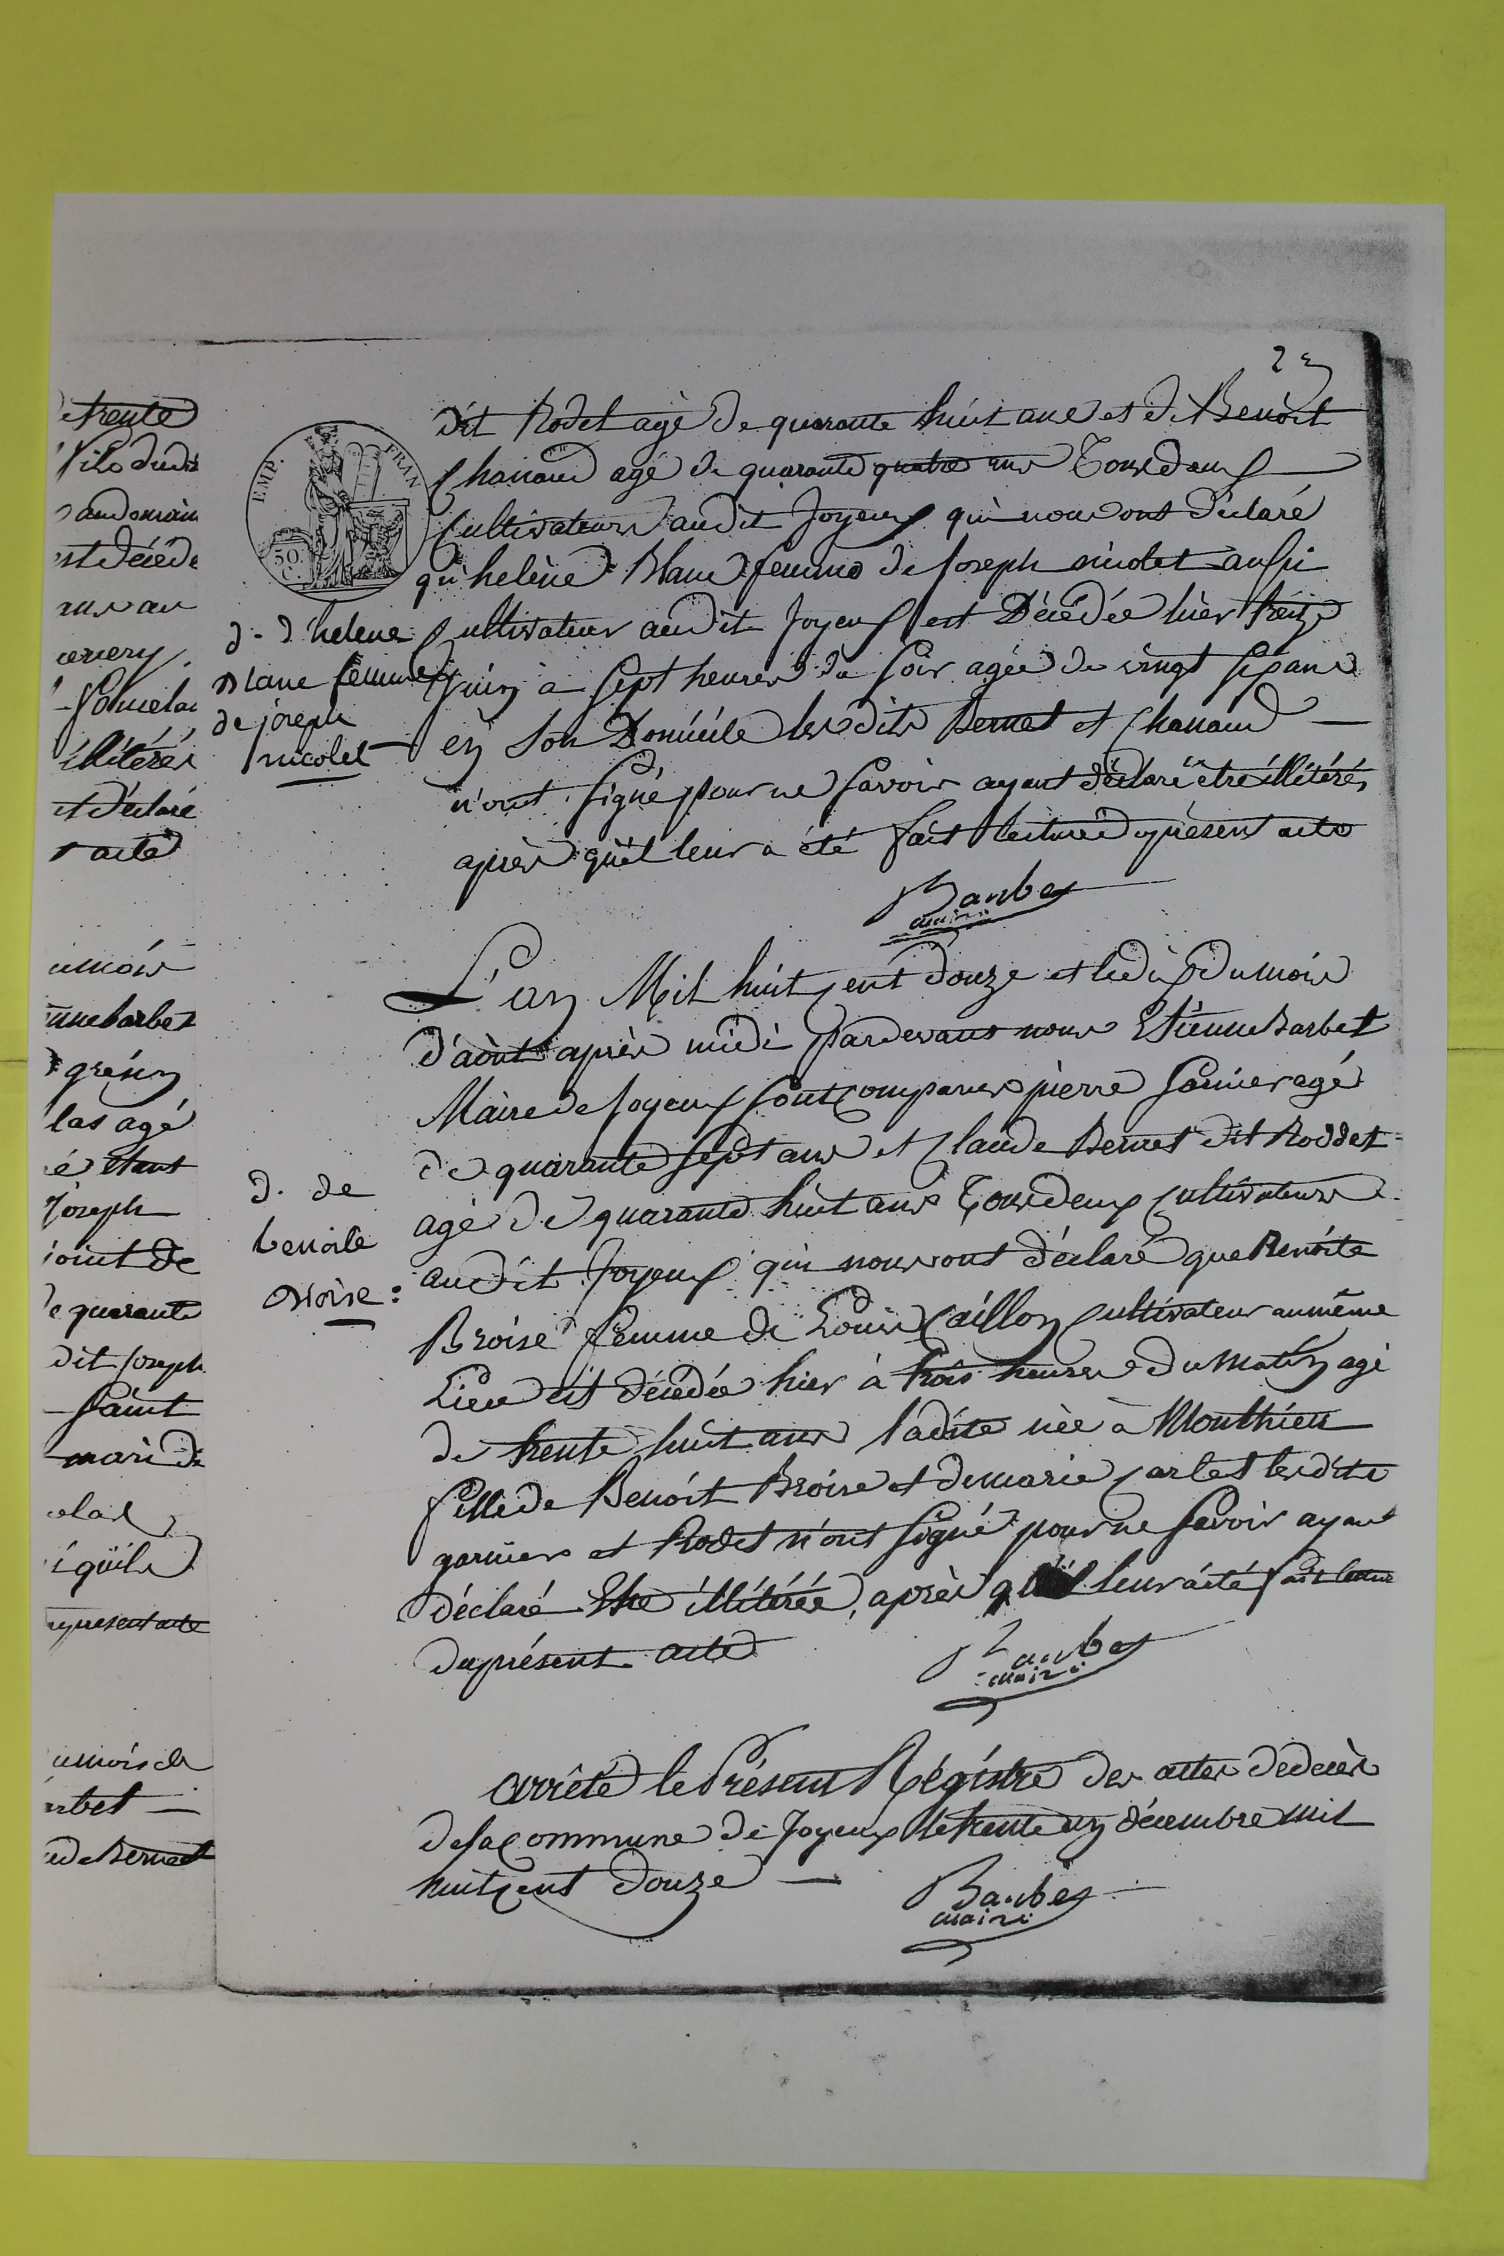 23
dit Rodet agé de quarante huit ans et de Benoit
Chanaud agé de quarante quatre ans Tous deux
Cultivateurs audit Joyeux qui nous ont déclaré
qu'helène Blanc femme de Joseph nicolet aussi
Cultivateur audit Joyeux est Décédée hier treize
Juin à sept heures du soir agée de vingt six ans
en son Domicile les dits Bernet et Chanaud
n'ont signé pour ne savoir ayant déclaré être illitérés
après qu'il leur a été fait lecture du présent acte
Barbet
maire
EMP. FRAN
50 C.
d. d'helene
Blanc femme
de joseph
nicolet
L'an Mil huit cent douze et le dix du mois
d'août après midi pardevant nous Etienne Barbet
Maire de Joyeux sont comparus pierre Garnier agé
de quarante sept ans et Claude Bernet dit Roddet
agé de quarante huit ans Tous deux Cultivateurs
audit Joyeux qui nous ont déclaré que Benoite
Broise femme de Louis Caillon Cultivateur au même
Lieu est décédée hier à trois heures du matin agé
de trente huit ans ladite née à Monthieu
fille de Benoit Broise et de marie Carlet les dits
garnier et Rodet n'ont signé pour ne savoir ayant
déclaré Etre illitérés, après qu'il leur a été fait lecture
du présent acte
Barbet
maire
d. de
benoite
Broise :
arrêté le Présent Régistre des actes de décès
de la commune de Joyeux le trente un décembre mil
huit cent douze
Barbet
maire
trente
est décédé
illitérés
et déclaré
acte
grésin
las agé
étant
joseph
joint de
quarante
dit joseph
saint
mari de
present acte